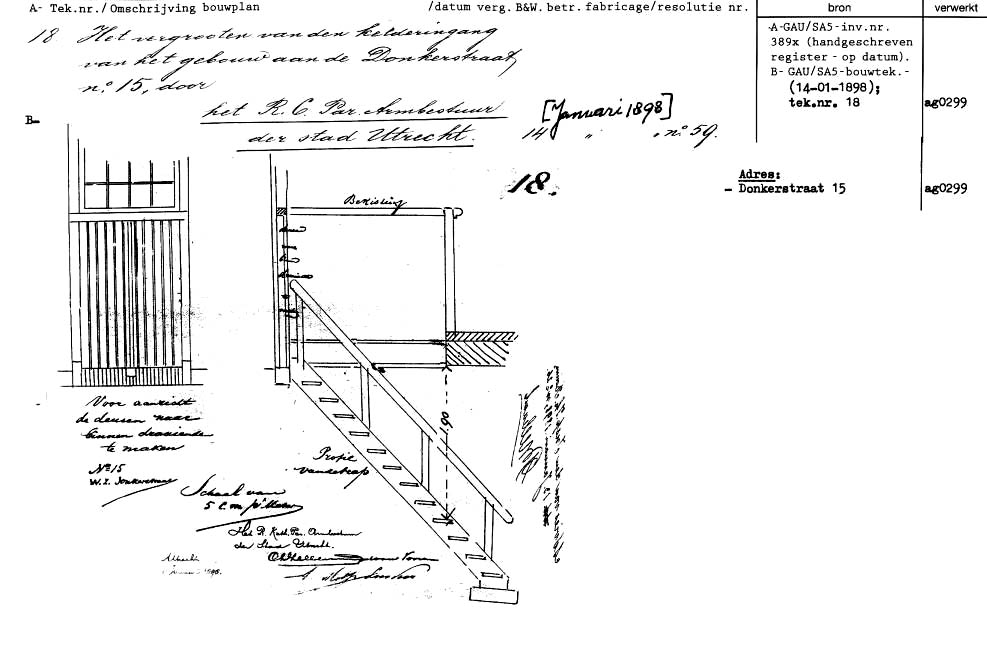 A- Tek.nr./Omschrijving bouwplan /datum verg. B&W. betr. fabricage/resolutie nr.
bron
verwerkt
18. Het vergrooten van den kelderingang
van het gebouw aan de Donkerstraat
no. 15, door
het R. C. Par. Armbestuur
der stad Utrecht.
[Januari 1898]
14 " " no. 59.
-A-GAU/SA5-inv.nr.
389x (handgeschreven
register - op datum).
B- GAU/SA5-bouwtek.-
(14-01-1898);
tek.nr. 18
ag0299
B-
18.
Adres:
- Donkerstraat 15
ag0299
Bekisting
1.90
Voor aanzicht
de deuren naar
binnen draaiende
te maken
No 15
W.I. Donkerstraat
Profiel
van de trap
Schaal van
5 c.m. pr. Meter
Het R. Kath. Par. Armbestuur
der Stad Utrecht.
Utrecht